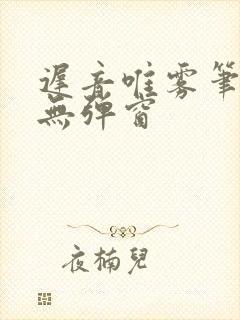 遲音唯雾筆
無弹窗
夜楠兒